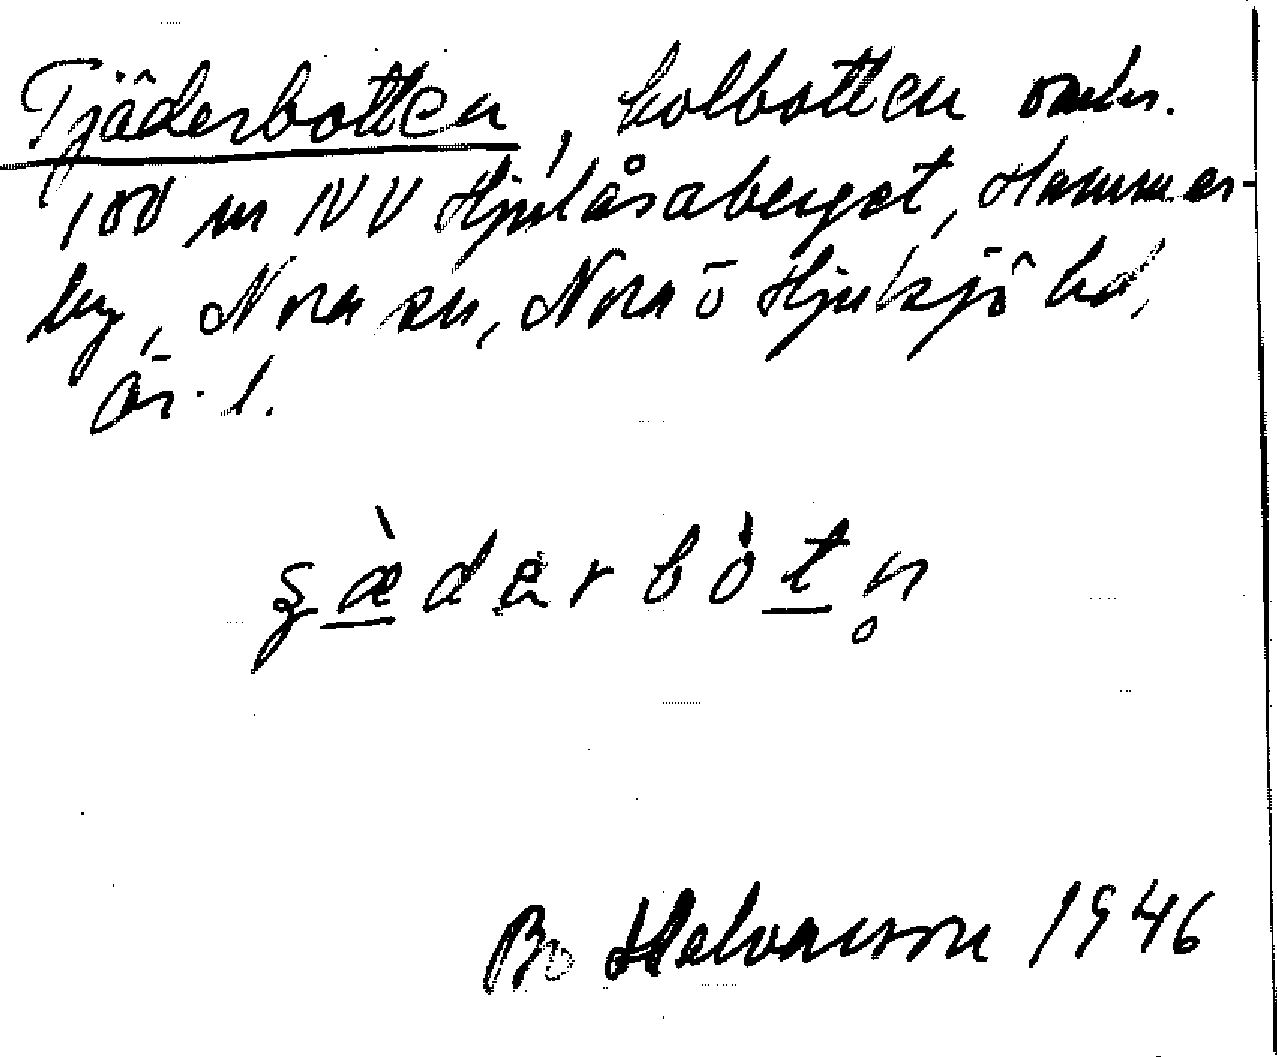 Tjäderbotten, kolbotten omkr.
100 m NV Hjulåsaberget, Hammar-
by, Nora sn, Nora o Hjulsjö hd,
Ör. l.
ʂæ̀derbòtn̥
Bo Halvarsson 1946